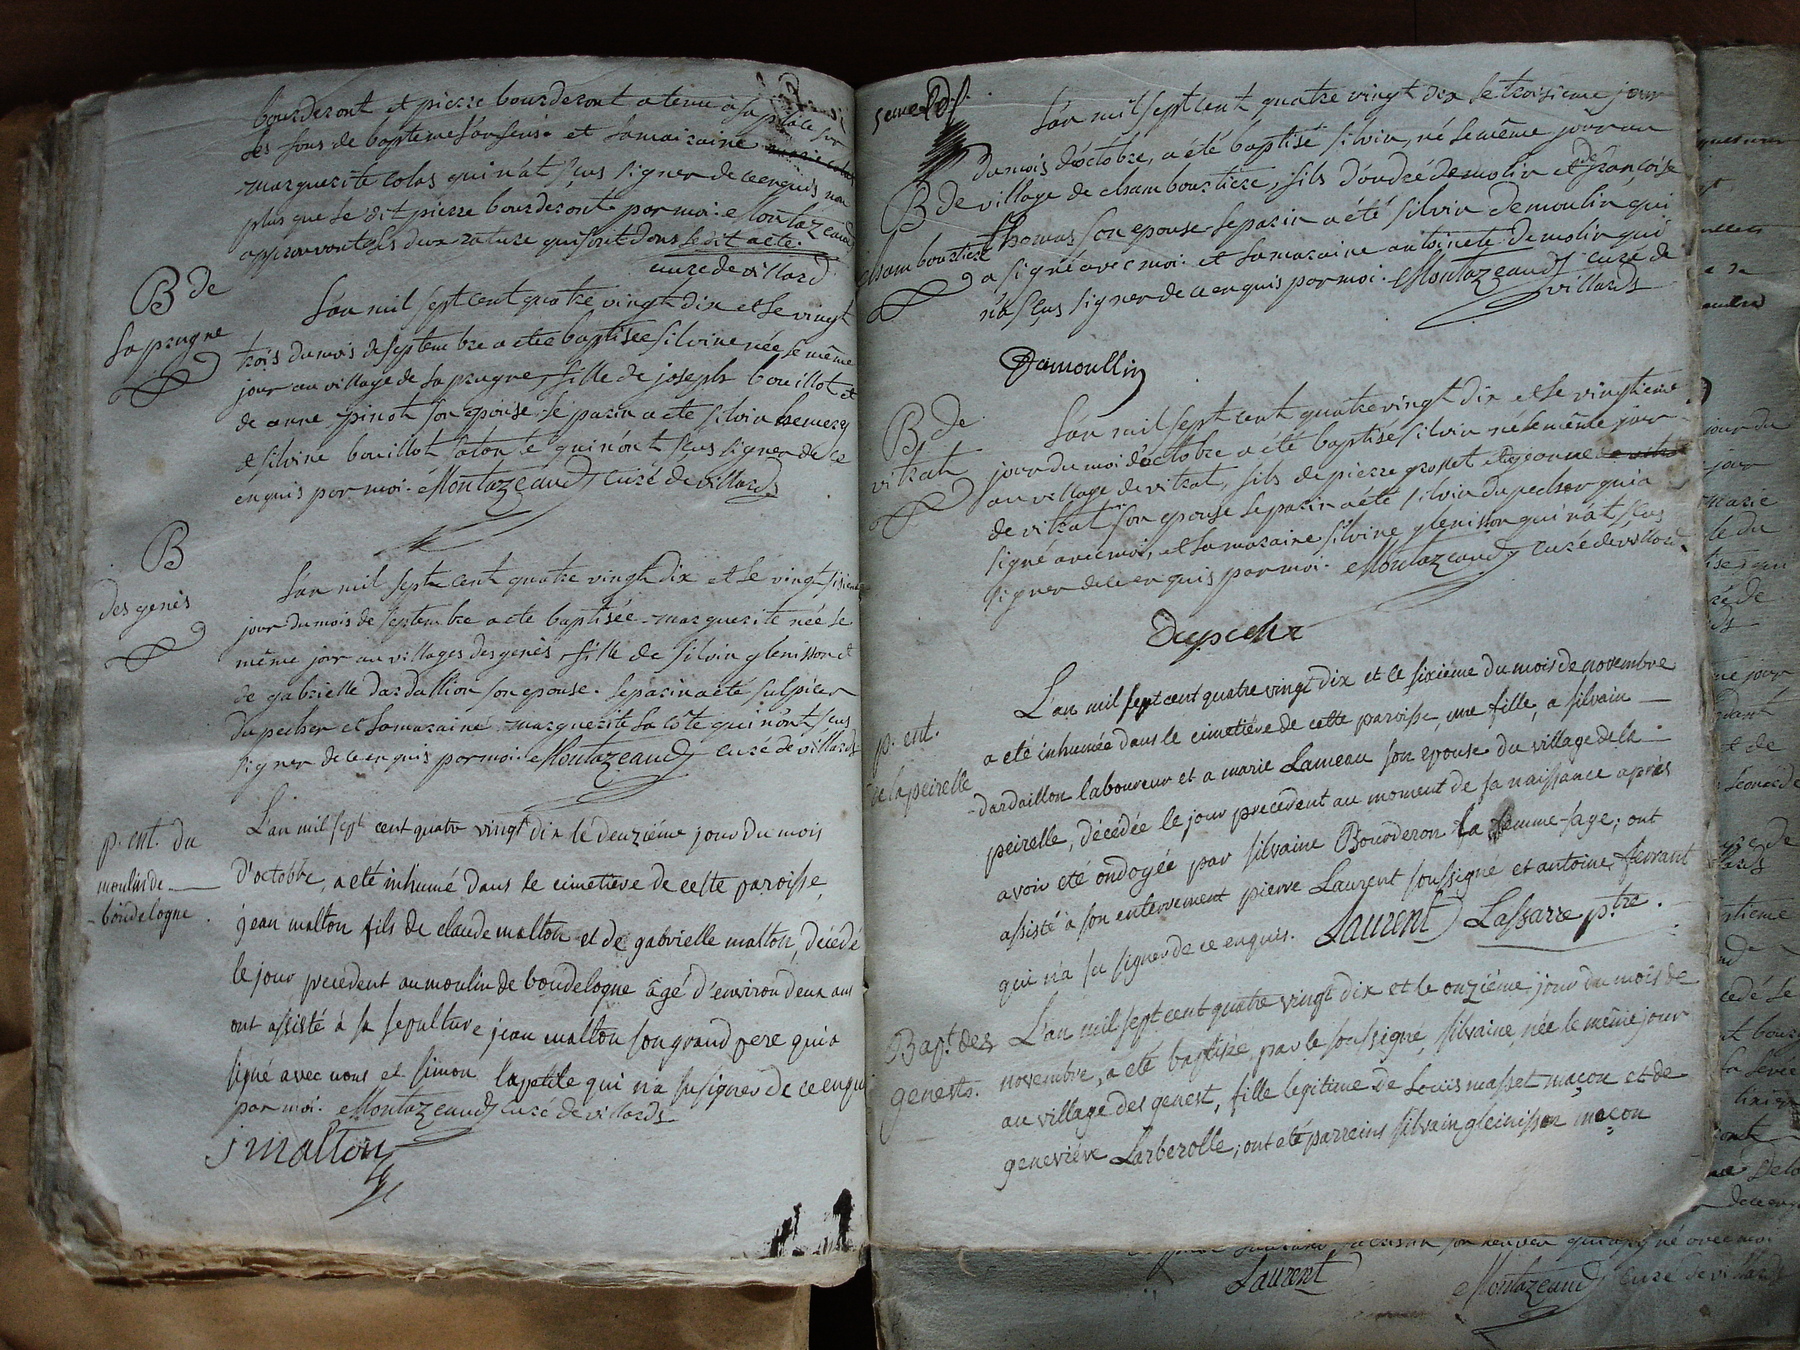 bourderont et pierre bourderont a tenu a sa place sur
les fons de bapteme l'ansensé et la maraine
marguerite colas qui n'at sçus signer de ce enquis non
plus que le dit pierre bourderont par moi. Montazeaud
approuvant les deux rature qui sont dans le dit acte.
curé de villard
B de
la prugne
L'an mil sept cent quatre vingt dix et le vingt
trois du mois de septembre a eté baptisée silvine née le même
jour au village de la prugne, fille de joseph bouillot et
de anne pinot son epouse. le parin a eté silvin
et silvine bouillot qui n'ont sçus signer de ce
enquis par moi. Montazeaud curé de villards
B
des genès
L'an mil sept cent quatre vingt dix et le vingt sixieme
jour du mois de septembre a eté baptisée marguerite née le
même jour au villages des genès fille de silvin glenisson et
de gabrielle dardallion son epouse. le parin a eté sulpicer
dupecher et la maraine marguerite la côte qui n'ont sçus
signer de ce enquis par moi. Montazeaud curé de villards
p. ent. du
moulin de
boudelogne
L'an mil sept cent quatre vingt dix le deuziéme jour du mois
D'octobre, a eté inhumé dans le cimetiere de cette paroisse,
jean malton fils de claude malton et de gabrielle malton, décédé
le jour precedent au moulin de boudelogne âgé d'environ deux ans
ont assisté à sa sepulture jean malton son grand pere qui a
signé avec nous et simon lapetite qui n'a su signer de ce enqui
par moi. Montazeaud curé de villards
j malton
B de
chambourtiere
L'an mil sept cent quatre vingt dix le troisieme jour
du mois d'octobre, a été baptisé silvin, né le même jour au
village de chambourtiere, fils d'andré demolin et de françoise
thomas son epouse le parin a été silvin demoulin qui
a signé avec moi. et la maraine antoinete demolin qui
n'a sçus signer de ce enquis par moi. Montazeaud curé de
villards
Damoullin
B de
vitrat
L'an mil sept cent quatre vingt dix et le vingtieme
jour du moi d'octobre a eté baptisé silvin né le même jour
au village de vitrat, fils de pierre grosset et jeanne
de vitrat son epouse le parin a eté silvin dupecher qui a
signé avec moi, et la maraine silvine glenisson qui n'at sçus
signer de ce enquis par moi. Montazeaud curé de villard
Dupecher
p. ent.
de la peirelle
L'an mil sept cent quatre vingt dix et le sixiéme du mois de novembre
a eté inhumée dans le cimetiére de cette paroisse, une fille, a silvain
dardaillon laboureur et a marie Lameau son epouse du village de la
peirelle, décédée le jour precedent au moment de sa naissance aprés
avoir eté ondoyée par silvaine Bourderon la femme-sage; ont
assisté à son enterrement pierre Laurent soussigné et antoine ferrant
qui n'a su signer de ce enquis. Laurent Lassarre ptre.
Bapt. des
genests.
L'an mil sept cent quatre vingt dix et le onziéme jour du mois de
novembre, a eté baptisée, par le soussigné, silvaine, née le même jour
au village des genest, fille legitime de Louis masset maçon et de
geneviève Larberolle; ont eté parreins silvain gleinisson maçon
Laurent
Montazeaud curé de villards